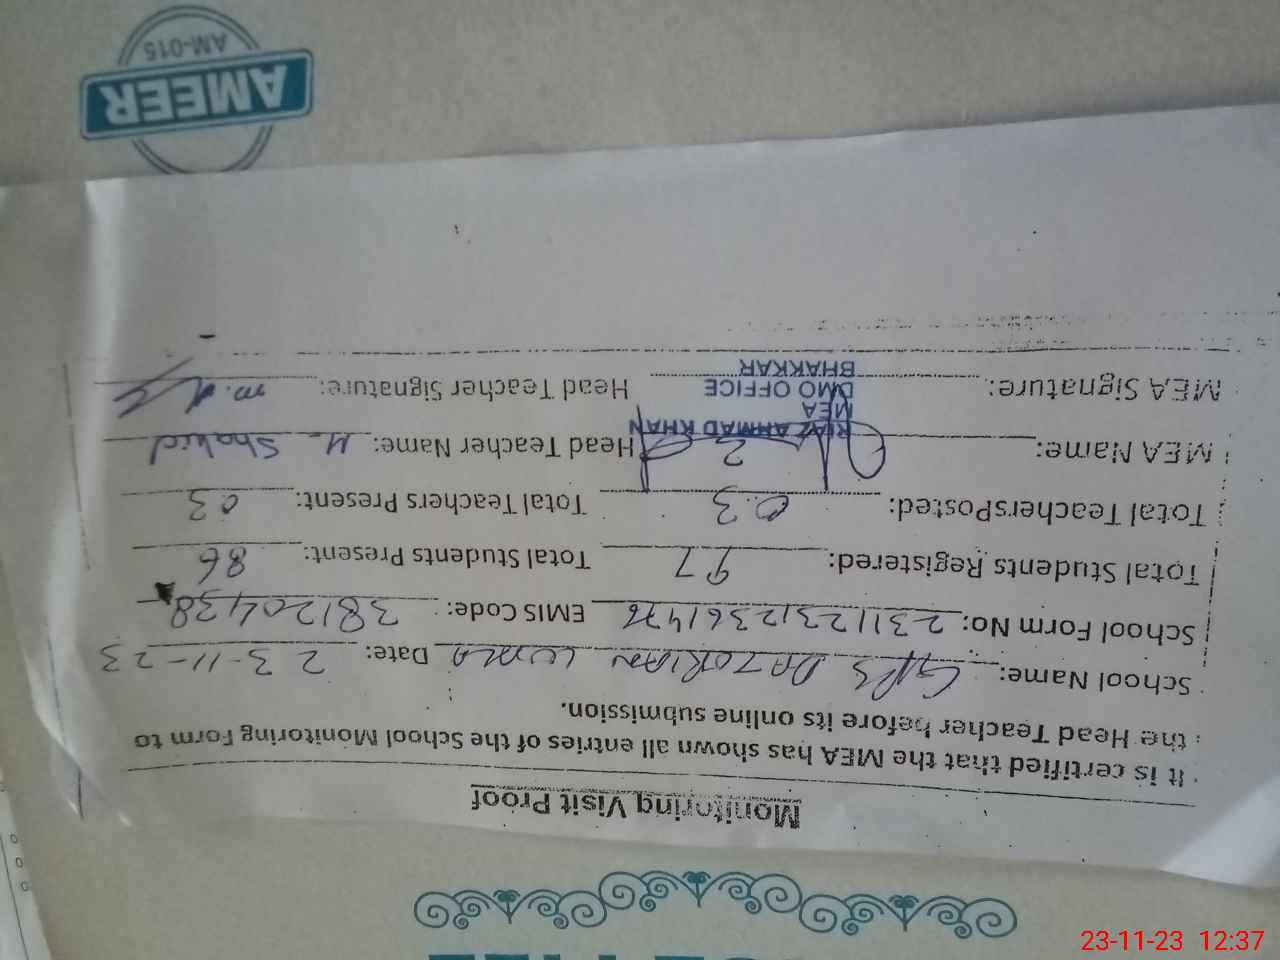 Monitoring Visit Proof
It is certified that the MEA has shown all entries of the School Monitoring Form to
the Head Teacher before its online submission.
School Name: GPS DATORIAN WALA Date: 23-11-23
School Form No: 23112312361476 EMIS Code: 38120438
Total Students Registered: 97 Total Students Present: 86
Total TeachersPosted: 03 Total Teachers Present: 03
MEA Name: Head Teacher Name: M. Shahid
RIAZ AHMAD KHAN
MEA
DMO OFFICE
BHAKKAR
MEA Signature: Head Teacher Signature:
AMEER
AM-015
23-11-23 12:37